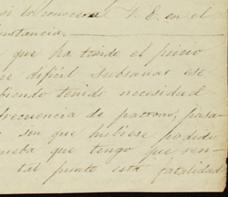 lo conocerá V. E. en el
instancia.
que ha tenido el piso
difícil subsanar ese
biendo tenido necesidad
frecuencia de patrono, pasa-
sin que hubiese podido
ueba que tengo que ren-
tal punto esta fatalidad